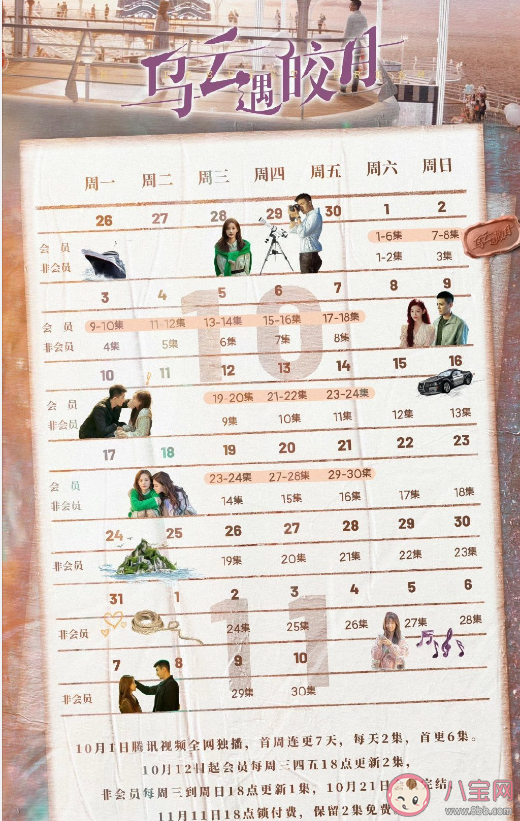 乌云遇皎月
周一 周二 周三 周四 周五 周六 周日
26 27 28 29 30 1 2
会 员 1-6集 7-8集
非会员 1-2集 3集
3 4 5 6 7 8 9
10
会 员 9-10集 11-12集 13-14集 15-16集 17-18集
非会员 4集 5集 6集 7集 8集
10 11 12 13 14 15 16
会 员 19-20集 21-22集 23-24集
非会员 9集 10集 11集 12集 13集
17 18 19 20 21 22 23
会 员 23-24集 27-28集 29-30集
非会员 14集 15集 16集 17集 18集
24 25 26 27 28 29 30
非会员 19集 20集 21集 22集 23集
31 1 2 3 4 5 6
11
非会员 24集 25集 26集 27集 28集
7 8 9 10
非会员 29集 30集
10月1日腾讯视频全网独播，首周连更7天，每天2集，首更6集。
10月12日起会员每周三四五18点更新2集，
非会员每周三到周日18点更新1集，10月21日 完结
11月11日18点锁付费，保留2集免费
八宝网
www.8bb.com